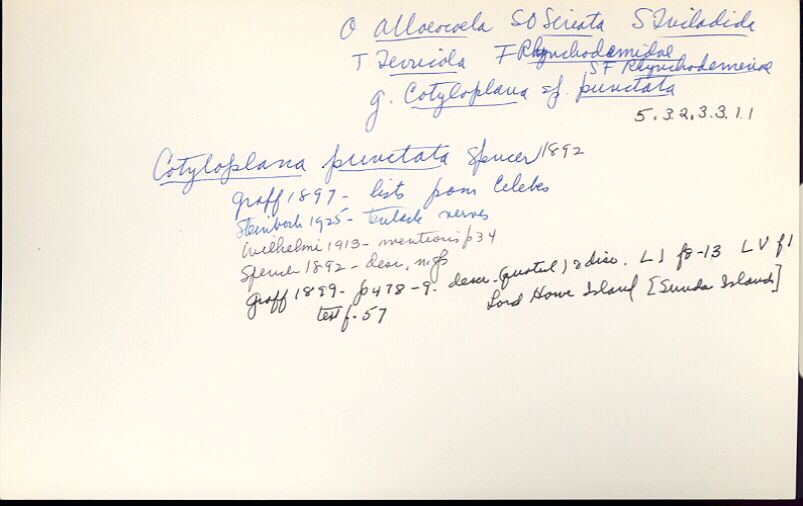 O Alloeocoela SO Seriata S Tricladida
T Terricola F Rhynchodemidae
SF Rhynchodeminae
g. Cotyloplana sp. punctata
5.3.2.3.3.1.1
Cotyloplana punctata Spencer 1892
Graff 1897 - lists from Celebes
Steinbock 1925 - tentacle nerves
Wilhelmi 1913 - mentions p34
Spencer 1892 - descr, n.
Graff 1899 - p478-9. descr. (quoted) & disc. LI f8-13 LV f1
text f. 57 Lord Howe Island [Sunda Islands]